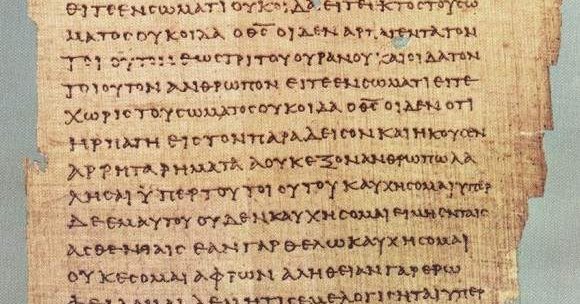 ΕΙΤΕΕΝϹΩΜΑΤΙΟΥΚΟΙΔΑΕΙΤΕΕΚΤΟϹΤΟΥϹΩ
ΜΑΤΟϹΟΥΚΟΙΔΑΟΘ̅Ϲ̅ΟΙΔΕΝΑΡΠΑΓΕΝΤΑΤΟΝ
ΤΟΙΟΥΤΟΝΕΩϹΤΡΙΤΟΥΟΥΡΑΝΟΥΚΑΙΟΙΔΑΤΟΝ
ΤΟΙΟΥΤΟΝΑΝΘΡΩΠΟΝΕΙΤΕΕΝϹΩΜΑΤΙΕΙΤΕ
ΧΩΡΙϹΤΟΥϹΩΜΑΤΟϹΟΥΚΟΙΔΑΟΘ̅Ϲ̅ΟΙΔΕΝΟΤΙ
ΗΡΠΑΓΗΕΙϹΤΟΝΠΑΡΑΔΕΙϹΟΝΚΑΙΗΚΟΥϹΕΝ
ΑΡΡΗΤΑΡΗΜΑΤΑΑΟΥΚΕΞΟΝΑΝΘΡΩΠΩΛΑ
ΛΗϹΑΙΫΠΕΡΤΟΥΤΟΙΟΥΤΟΥΚΑΥΧΗϹΟΜΑΙΥΠΕΡ
ΔΕΕΜΑΥΤΟΥΟΥΔΕΝΚΑΥΧΗϹΟΜΑΙΕΙΜΗΕΝΤΑΙϹ
ΑϹΘΕΝΙΑΙϹΕΑΝΓΑΡΘΕΛΩΚΑΥΧΗϹΟΜΑΙ
ΟΥΚΕϹΟΜΑΙΑΦΡΩΝΑΛΗΘΕΙΑΝΓΑΡΕΡΩ
ΦΕΙΔΟΜΑΙΔΕΜΗΤΙϹΕΜΕΛΟΓΙϹΗΤΑΙΥΠΕΡ